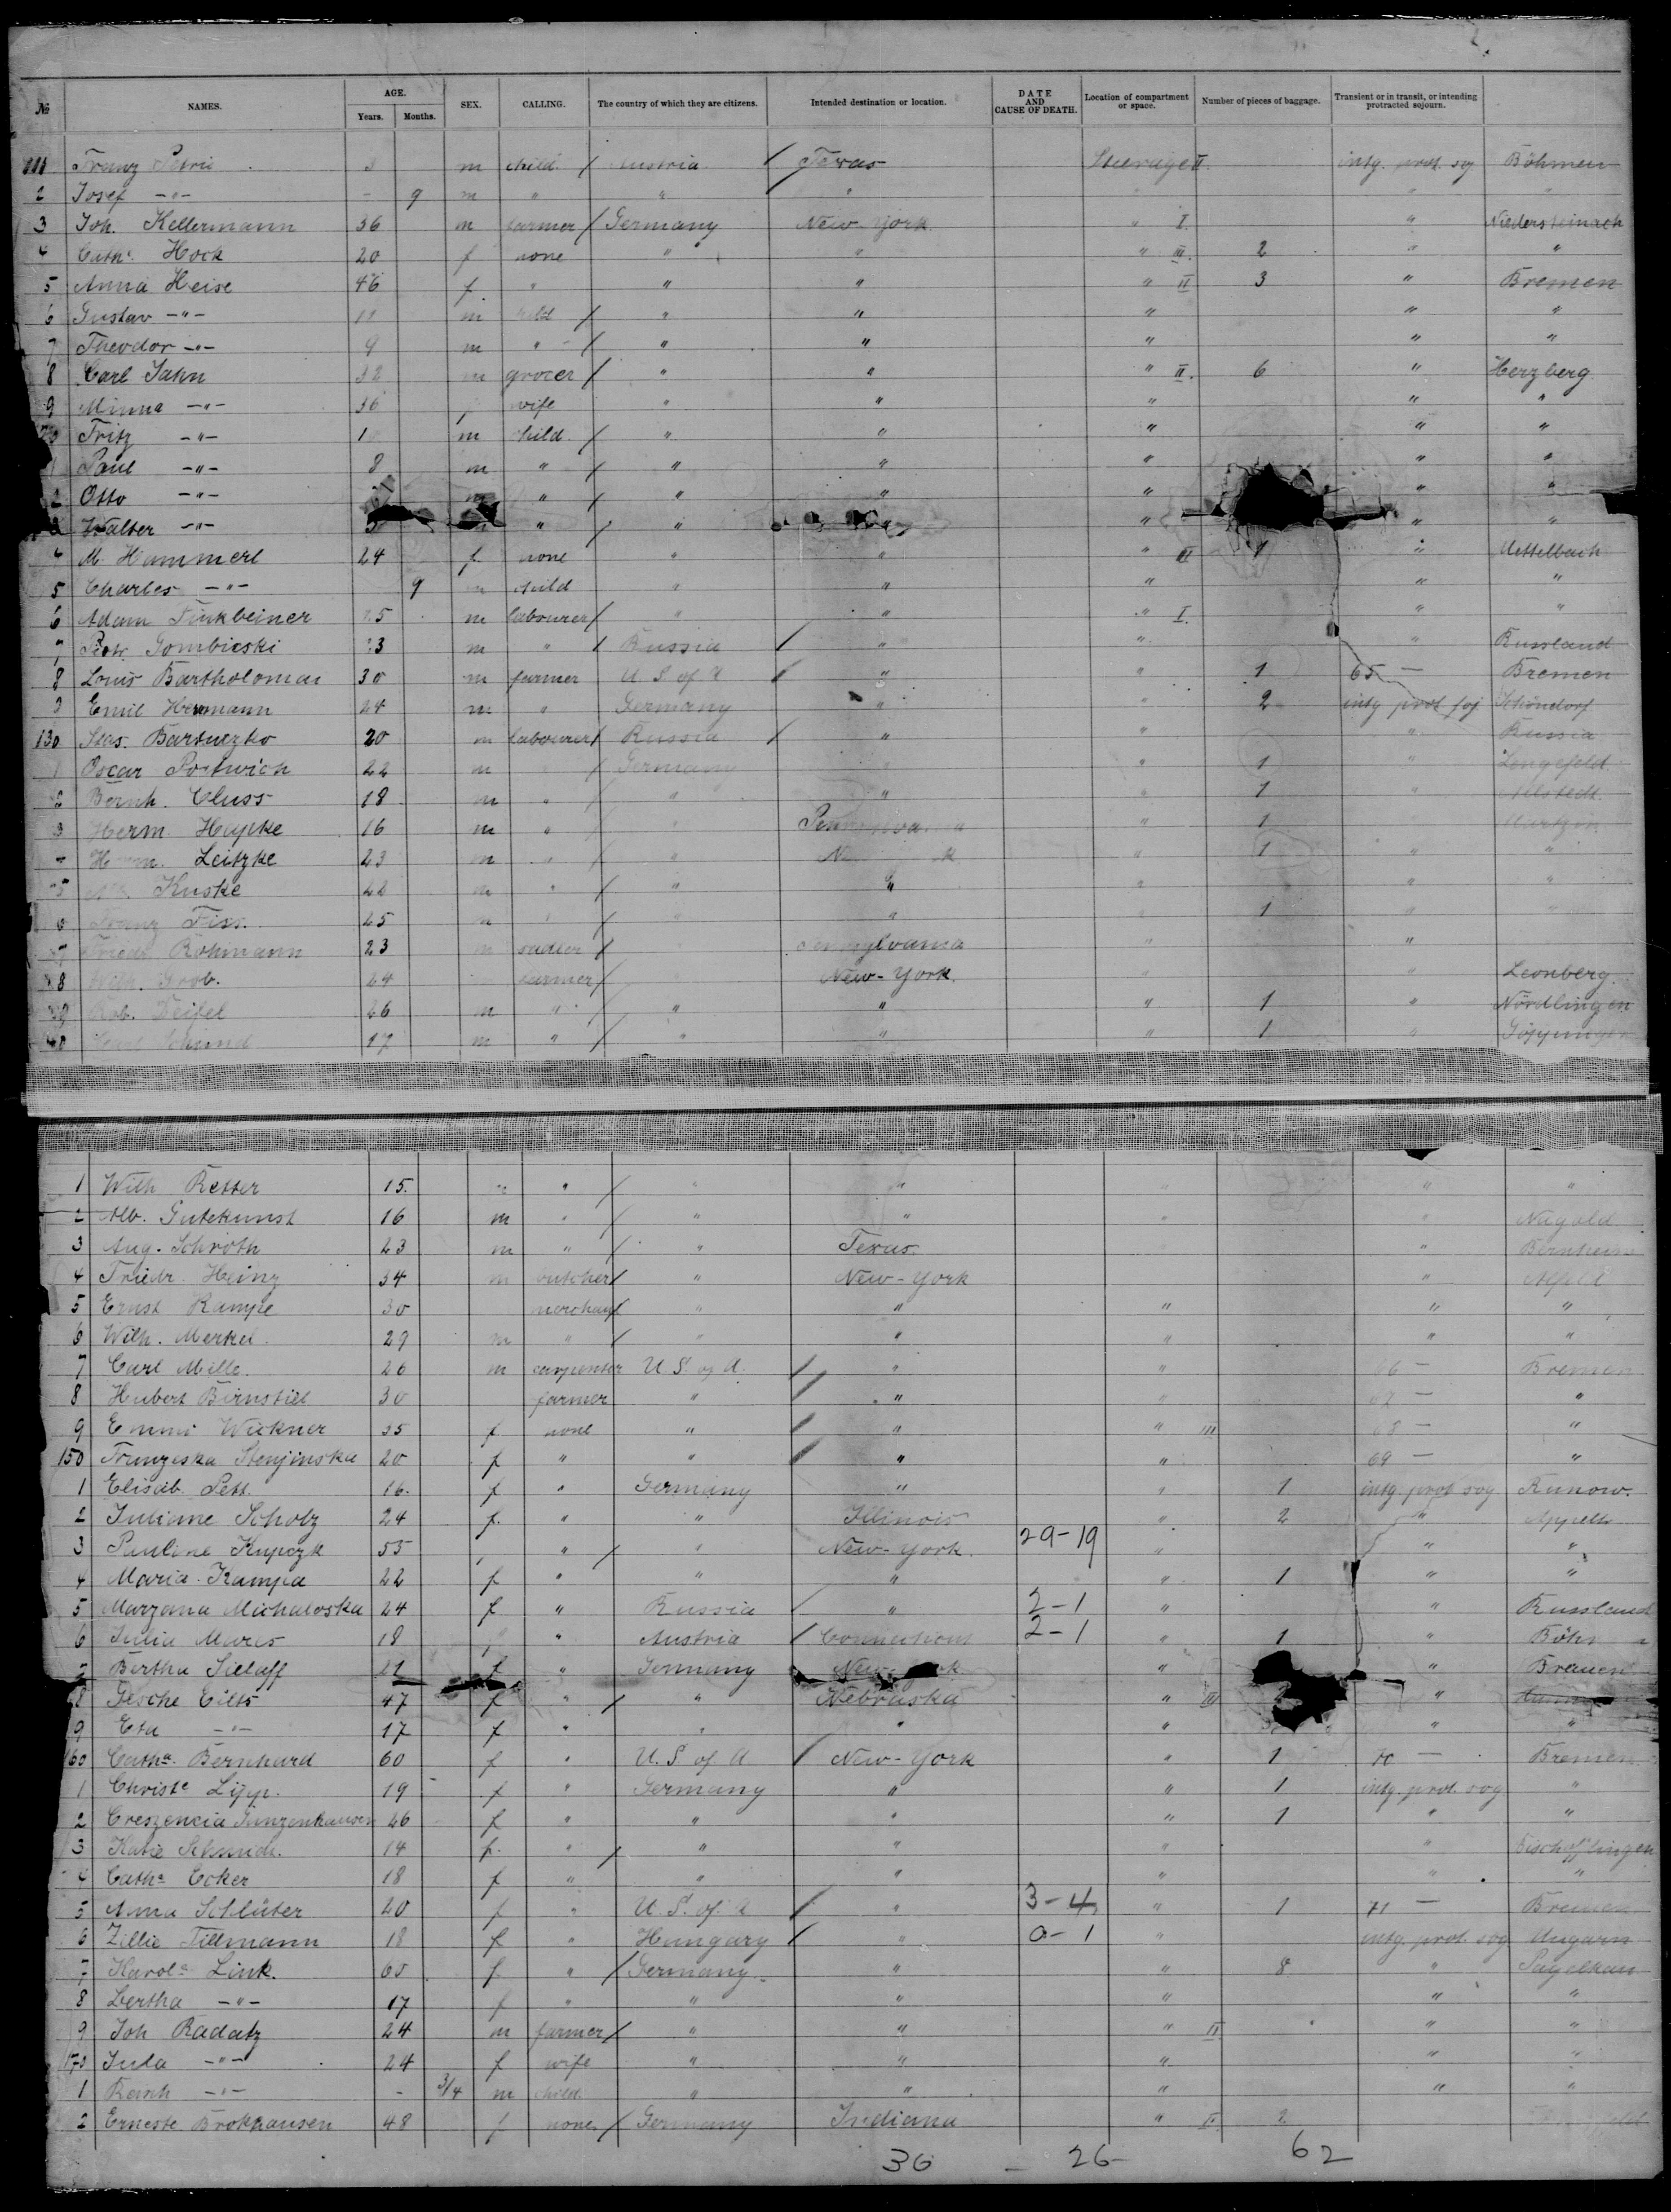 № NAMES. AGE. Years. Months. SEX. CALLING. The country of which they are citizens. Intended destination or location. DATE AND CAUSE OF DEATH. Location of compartment or space. Number of pieces of baggage. Transient or in transit, or intending protracted sojourn.
111 Franz Petrie m child / Austria / Texas Steerage II intg. prot. soj Böhmen
2 Josef -"- - 9 m " " / " " " "
3 Joh. Kellermann 36 m farmer / Germany New-York " I. " Niedersteinach
4 Cathe. Hock 20 f none " " " III. 2 " "
5 Anna Heise 46 f " " " " II 3 " Bremen
6 Gustav -"- 11 m child / " " " " "
7 Theodor -"- 9 m " / " " " " "
8 Carl Jahn 32 m grocer / " " " II. 6 " Herzberg
9 Minna -"- 36 wife " " " " "
Fritz -"- m child / " " " " "
1 Paul -"- 8 m " / " " " " "
2 Otto -"- m " / " " " " "
Walter -"- " / " " " "
4 M. Hammerl 24 f. none " " " III 1 "
5 Charles -"- 9 m child " " " " "
6 Adam Finkbeiner 25 m labourer / " " " I. " "
7 Gombicski 23 m " / Russia / " " " Russland
8 Louis Bartholomae 30 m farmer U. S. of A / " " 1 65 - Bremen
9 Emil Hermann 24 m " Germany " " 2 intg prot soj Schöndorf
130 Stas. Bartuczko 20 m labourer / Russia / " " " Russia
1 Oscar Postwich 22 m / Germany " " 1 " Lengefeld
2 Bernh. Cluss 18 m " / " " " 1 " Allstedt
3 Herm. Hapke 16 m " / " Pennsylvania " 1
Herm. Leitzke 23 m " / " 1 " "
5 Kuske 22 m " / " " " " "
6 Franz Fiss. 25 m " / " " " 1 " "
7 Friedr. Röhmann 23 m sadler / Pennsylvania " "
8 Wilh. Grob. 24 farmer / New-York. " " Leonberg.
39 Rob. Deifel 26 m " / " " " 1 " Nördlingen
40 Carl Schmid 17 m " / " " " 1 " Göppingen
1 Wilh Retter 15. " / " " " " "
2 Alb. Gutekunst 16 m " / " " " " Nagold
3 Aug. Schroth 23 m " / " Texas. " Bernheim
4 Friedr. Heinz 34 m butcher / " New-York " Alfeld
5 Ernst Kampe 30 merchant / " " " " "
6 Wilh. Merkel. 29 m " / " " " " "
7 Carl Mille. 26 m carpenter U. S. of A. / " " 66 - Bremen
8 Hubert Birnstiel 30 farmer " / " " 67 - "
9 Emmi Wickner 35 f none " / " " III 68 - "
150 Franziska Stenjinska 20 f " " / " " 69 - "
1 Elisab. Pett. 16. f " Germany " " 1 intg prot soj Kunow.
2 Juliane Scholz 24 f. " " Illinois " 2 "
3 Pauline Kupczk 55 " / " New-York. 29-19 " " "
4 Maria Kampa 22 f " " " " 1 " "
5 Marzana Michaloska 24 f " Russia / " 2-1 " " Russland
6 Julia Mares 18 " Austria / Connecticut 2-1 " 1 "
Bertha Sielaff 21 f " Germany New-York " " Bremen
8 Gesche Eilts 47 f " / " Nebraska " III "
9 Eta -"- 17 f " " " " " "
160 Cathe. Bernhard 60 f " U. S of A / New-York " 1 70 - Bremen
1 Christe Lipp. 19 f " Germany " " 1 intg. prot. soj "
2 Creszencia Gunzenhausen 26 f " " " " 1 " "
3 Katie Schmidt. 14 f. " / " " " " Bischoffingen
4 Cathe Ecker 18 f " " " " " "
5 Anna Schlüter 20 f " U. S. of A / " 3-4 " 1 71 - Bremen
6 Zillie Tillmann 18 f " Hungary / " 0-1 " intg. prot. soj Ungarn
7 Karole Link. 60 f " / Germany " " 8 "
8 Bertha -"- 17 f " " " " " "
9 Joh Radatz 24 m farmer / " " " II " "
170 Jula -"- 24 f wife " " " " "
1 -"- - 3/4 m child " " " " "
2 Erneste Brokhausen 48 f none / Germany Indiana " II 2
36 - 26 - 62